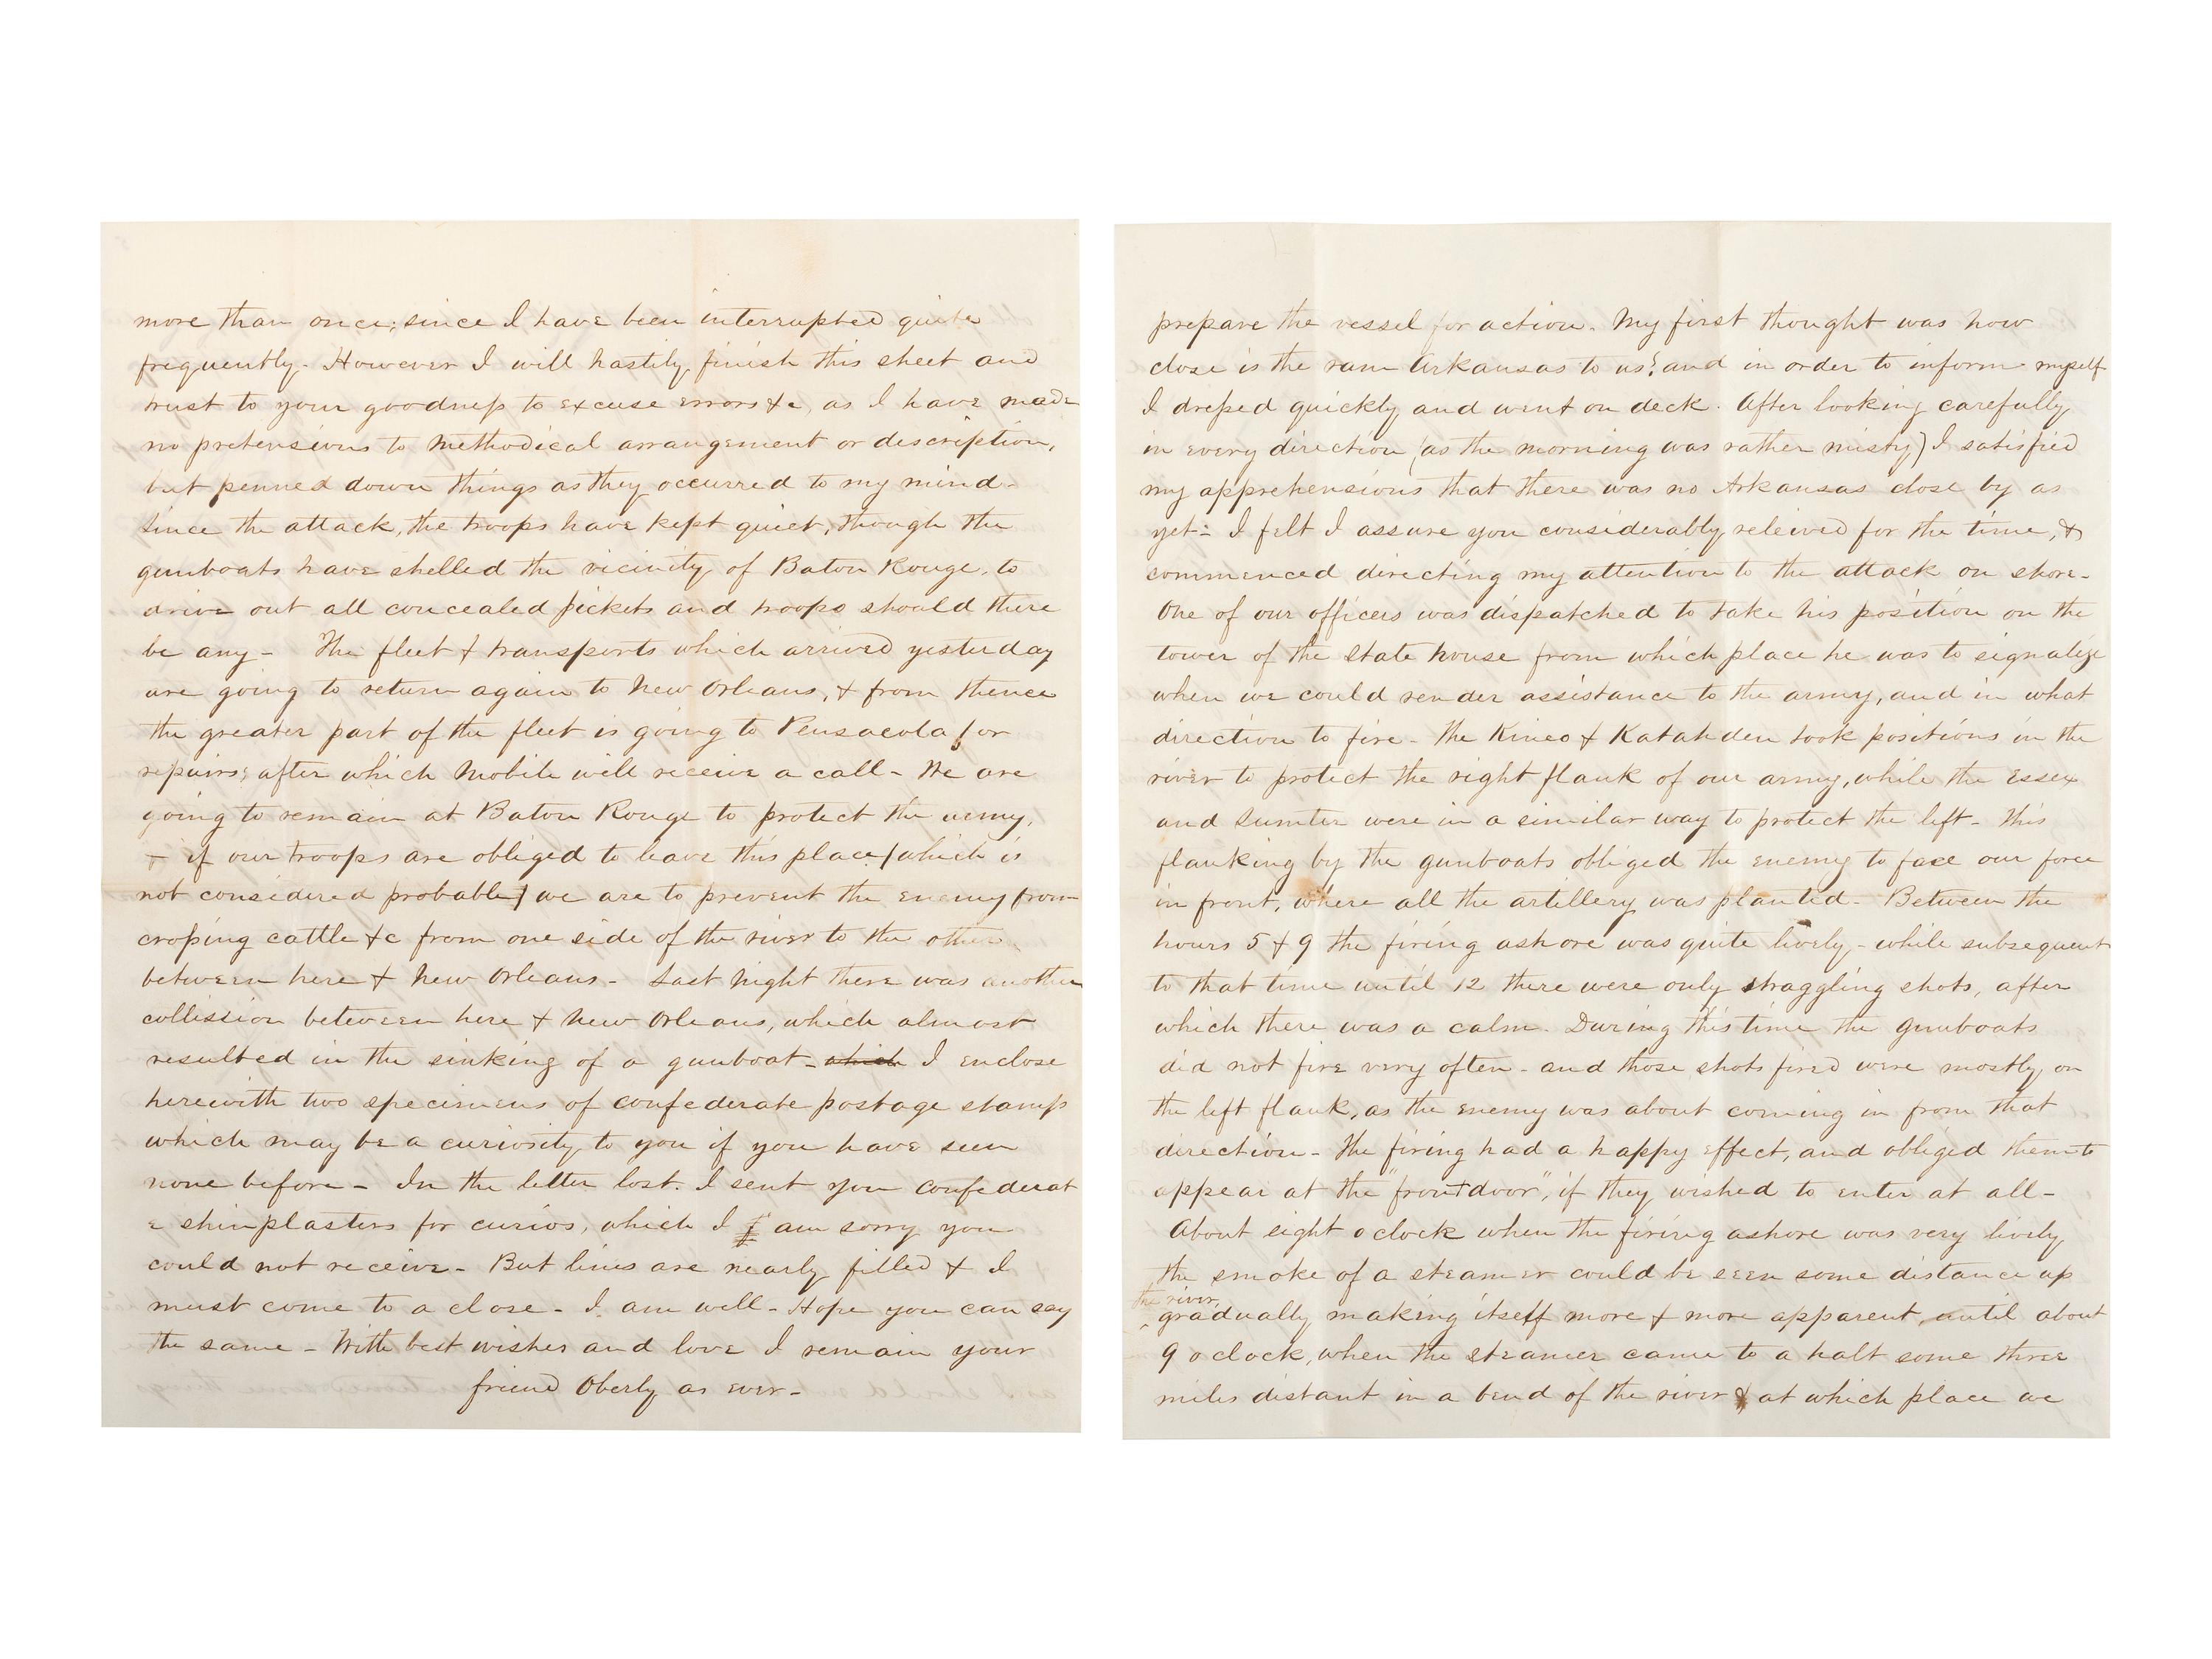 more than once; since I have been interrupted quite
frequently. However I will hastily finish this sheet and
trust to your goodness to excuse errors &c, as I have made
no pretensions to methodical arrangement or description,
but penned down things as they occurred to my mind -
Since the attack, the troops have kept quiet, though the
gunboats have shelled the vicinity of Baton Rouge, to
drive out all concealed pickets and troops should there
be any - The fleet & transports which arrived yesterday
are going to return again to New Orleans, & from thence
the greater part of the fleet is going to Pensacola for
repairs; after which Mobile will receive a call - We are
going to remain at Baton Rouge to protect the army,
& if our troops are obliged to leave this place (which is
not considered probable) we are to prevent the enemy from
croping cattle &c from one side of the river to the other
between here & New Orleans - Last night there was another
collission between here & New Orleans, which almost
resulted in the sinking of a gunboat - which I enclose
herewith two specimens of confederate postage stamps
which may be a curiosity to you if you have seen
none before - In the letter lost. I sent you confederat
e shinplasters for curios, which I I am sorry you
could not receive - But lines are nearly filled & I
must come to a close - I am well - Hope you can say
the same - With best wishes and love I remain your
friend Oberly as ever -
prepare the vessel for action. My first thought was how
close is the ram Arkansas to us? and in order to inform myself
I dressed quickly and went on deck. After looking carefully
in every direction (as the morning was rather misty) I satisfied
my apprehensions that there was no Arkansas close by as
yet - I felt I assure you considerably releived for the time, &
commenced directing my attention to the attack on shore -
One of our officers was dispatched to take his position on the
tower of the State house from which place he was to signalize
when we could render assistance to the army, and in what
direction to fire - The Kineo & Katahden took positions in the
river to protect the right flank of our army, while the Essex
and Sumter were in a similar way to protect the left - This
flanking by the gunboats obliged the enemy to face our force
in front, where all the artillery was planted - Between the
hours 5 & 9 the firing ashore was quite lively - while subsequent
to that time until 12 there were only straggling shots, after
which there was a calm. During this time the gunboats
did not fire very often - and those shots fired were mostly on
the left flank, as the enemy was about coming in from that
direction - The firing had a happy effect, and obliged them to
appear at the "front door", if they wished to enter at all -
About eight o clock when the firing ashore was very lively
the smoke of a steamer could be seen some distance up
the river
gradually making itself more & more apparent, until about
9 o clock, when the steamer came to a halt some three
miles distant in a bend of the river & at which place we